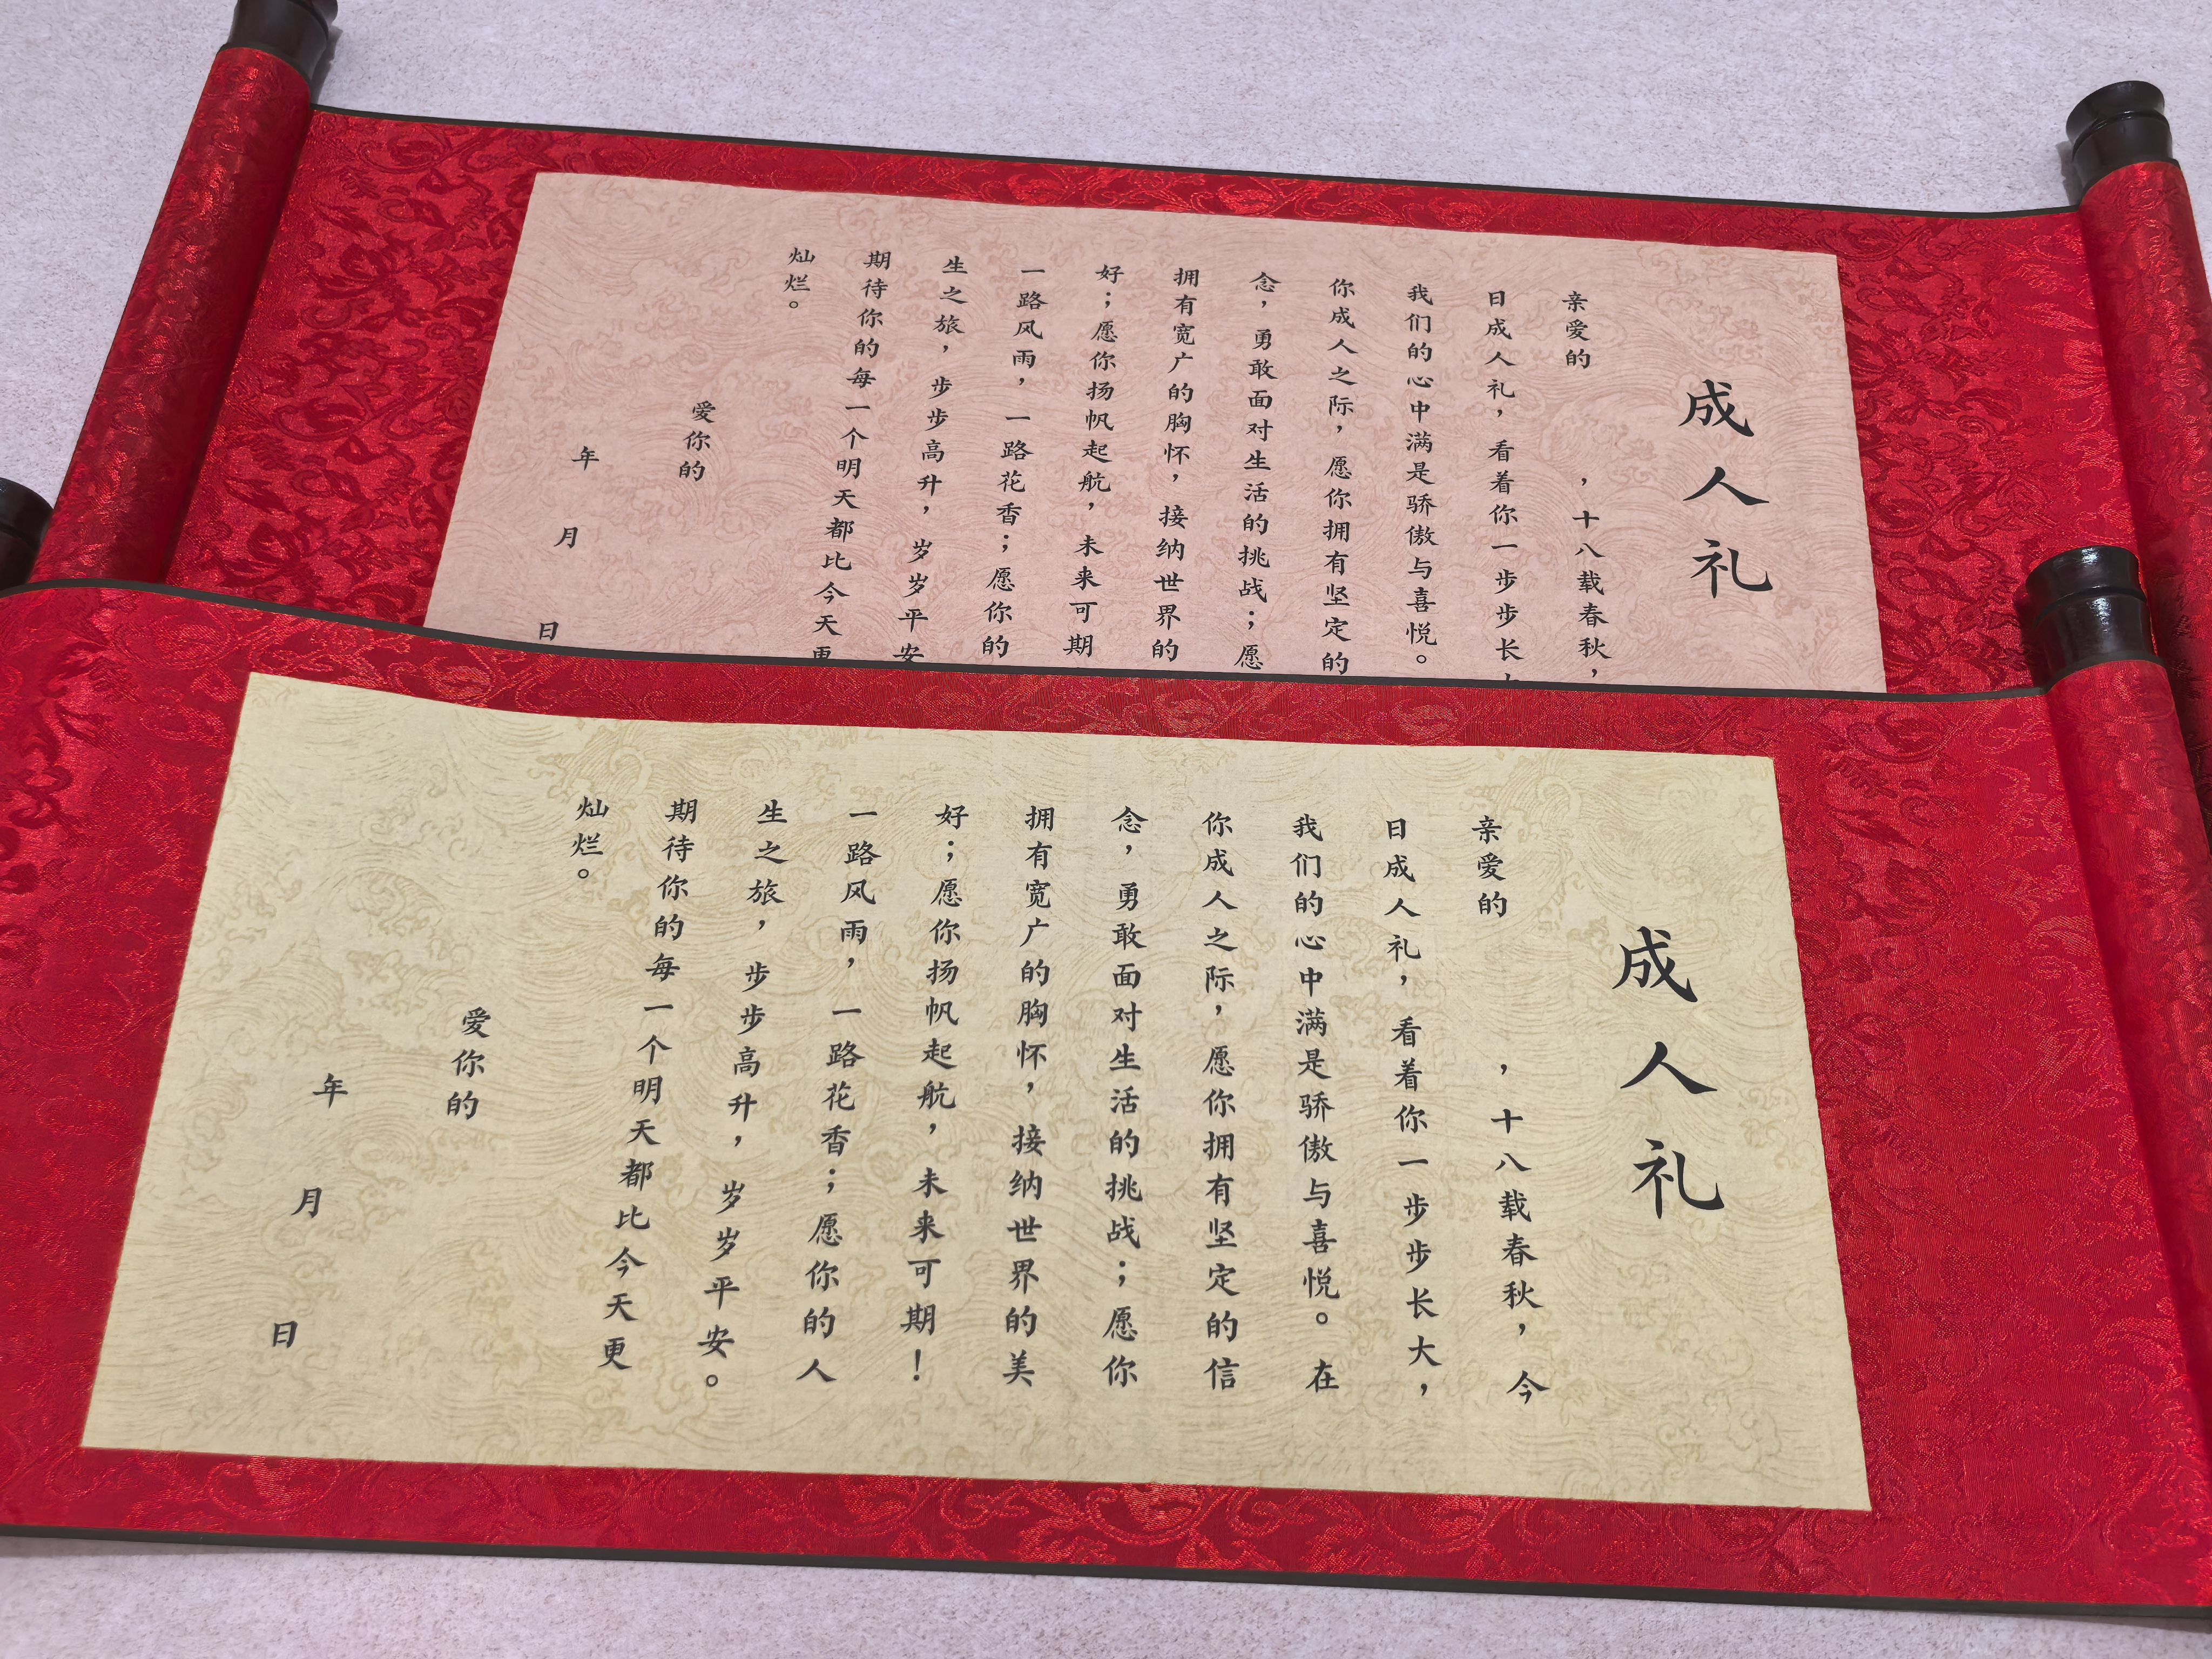 成人礼
亲爱的 ，十八载春秋，
日成人礼，看着你一步步长
我们的心中满是骄傲与喜悦。
你成人之际，愿你拥有坚定的
念，勇敢面对生活的挑战；愿
拥有宽广的胸怀，接纳世界的
好；愿你扬帆起航，未来可期
一路风雨，一路花香；愿你的
生之旅，步步高升，岁岁平安
期待你的每一个明天都比今天更
灿烂。
爱你的
年 月 日
成人礼
亲爱的 ，十八载春秋，今
日成人礼，看着你一步步长大，
我们的心中满是骄傲与喜悦。在
你成人之际，愿你拥有坚定的信
念，勇敢面对生活的挑战；愿你
拥有宽广的胸怀，接纳世界的美
好；愿你扬帆起航，未来可期！
一路风雨，一路花香；愿你的人
生之旅，步步高升，岁岁平安。
期待你的每一个明天都比今天更
灿烂。
爱你的
年 月 日